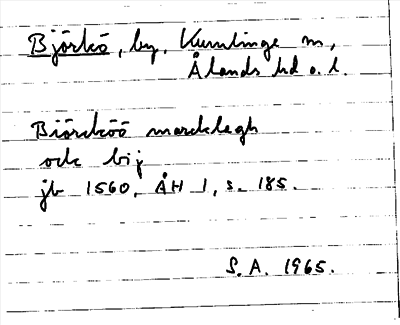 Björkö, by, Kumlinge sn,
Ålands hd o. l.
Biörcköö marcklagh
ock bij
jb 1560, ÅH 1, s. 185.
S. A. 1965.